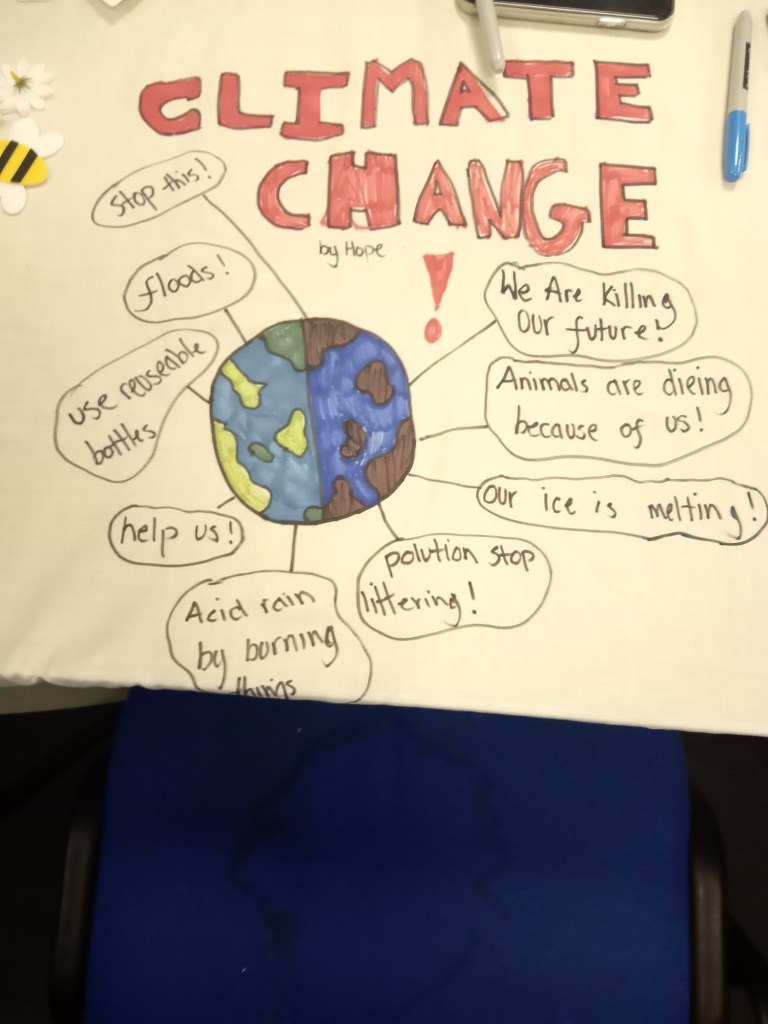 CLIMATE
CHANGE
!
by Hope
stop this!
floods!
use reuseable
bottles
help us!
Acid rain
by burning
things
We Are Killing
Our future!
Animals are dieing
because of us!
Our ice is melting!
polution stop
littering!